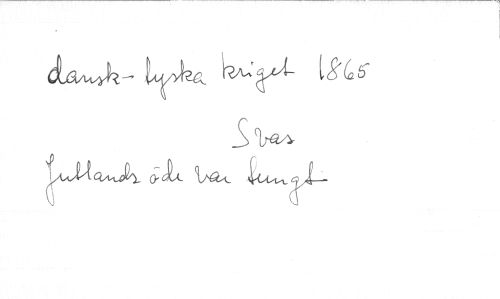 dansk-tyska kriget 1865
Svas
Jutlands öde var tungt